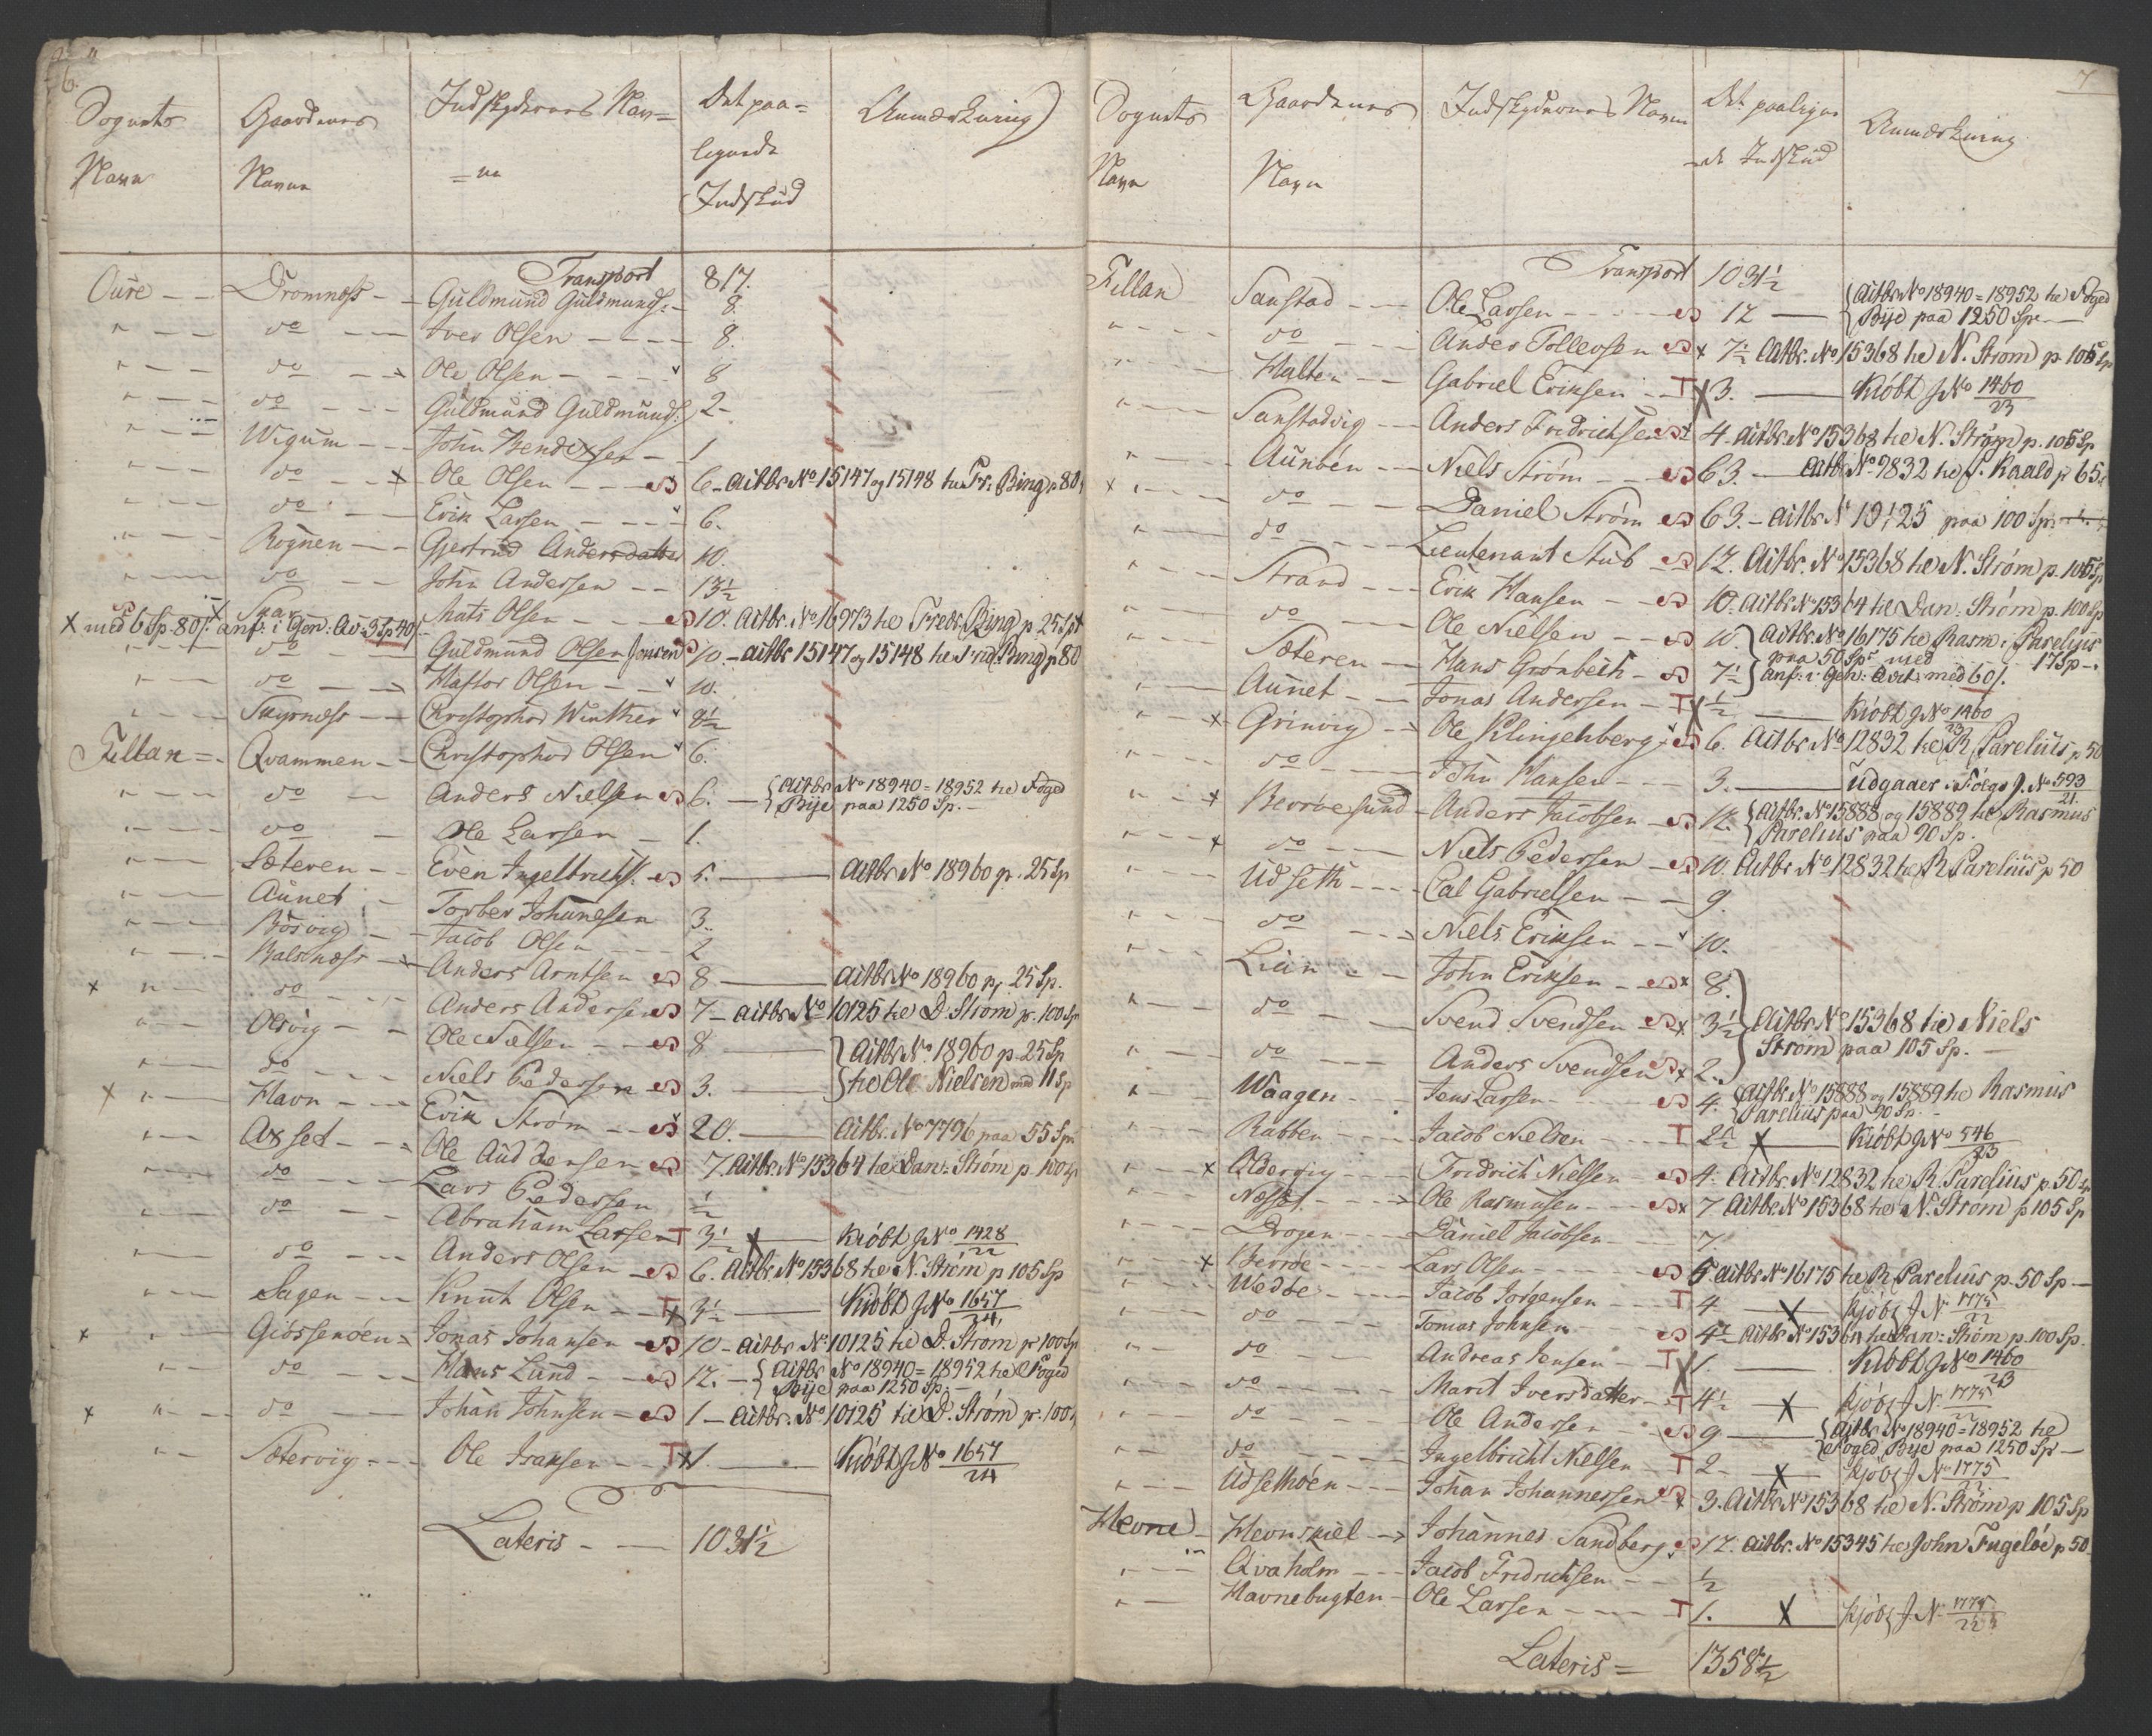 6.
Sognets Navn | Gaardenes Navne | Indskydernes Navne | Det paalegnede Indskud | Anmærkning
Transport 817.
Oure - - Dromnæss - - Guldmund Guldmunds: - 8.
" - - do - - Iver Olsen - - - - 8.
" - - do - - Ole Olsen - - - - 8
" - - do - - - Guldmund Guldmunds: 2 -
" - - Wigum - - John Bendixsen - - 1
" - - do - - x Ole Olsen - - - S 6 - Aitbr No 15147 og 15148 he Fr: Bing p 80
" - - do - - Erik Larsen - - - - 6.
" - - Rognen - - Gjertrud Andersdatter 10.
" - - do - - John Andersen - - 13½
X med 6 Sp. 80 s. anf: i Gen: Qv: 3 Sp 40 s.
" - - Skar - - Mats Olsen - - - S 10. Aitbr. No 16973 he Fredr. Bing p. 25 Spd
" - - do - - Guldmund Olsen Jonsen S 10. - aitbr 15147 og 15148 he Frid. Bing p 80
" - - do - - Hastor Olsen - - 10.
" - - Skyrnæss - - Christopher Winther 8½
Fillan - - Qvammen - - Christopher Olsen 6.
" - - do - - Anders Nielsen S 6. - { Aitbr No 18940 = 18952 he Foged
Bije paa 1250 Sp. -
" - - do - Ole Larsen - 1.
" - - Sæteren - - Even Ingelbrichts. - S 5. - Aitbr No 18960 p. 25 Sp
" - - Aunet - Torber Johansen 3.
" - - Bosvig - - Jacob Olsen - - - 2
" - - Balsnæss - - Anders Arntsen S 8 - aitbr No 18960 p. 25 Sp.
x " - do - - - Anders Andersen S 7 - aitbr. No 10125 he D. Strøm p. 100 Sp
" - - Olsvig - - Ole Nielsen - - S 8 - } Aitbr No. 18960 p. 25 Sp
" - - do - - - Niels Pedersen S 3. - } he Ole Nielsen med 11 Sp
x " - Havn - - - Erik Strøm - - S 20. - Aitbr. No 7796 paa 55 Sp.
" - - Axset - - - Ole Auddensen S 7. Aitbr. No 15364 he Dan: Strøm p. 100 Sp
" - - do - - - Lars Pedersen ½
" - - do - - Abraham Larsen T 3½ x Kiöbt J No 1428/22
" - - do - - Anders Olsen - S 6. Aitbr No 15368 he N. Strøm p 105 Sp
" - - Sagen - - Knut Olsen - - T x 3½ - Kiöbt J No 1657/24
x " - Giössenöen - Jonas Johansen S 10 - aitbr. No 10125 he D. Strøm p 100 Sp
" - - do - - - Hans Lund - - S 12. - { Aitbr No 18940 = 18952 he Foged
Bije paa 1250 Sp. -
x " - - do - - Johan Johnsen - S 1 - Aitbr. No 10125 he D. Strøm p. 100
" - - Sætervig - - - Ole Iraksen - - T x 1. - Kiöbt J No 1657/24
Lateris - - 1031½
7
Sognets Navn | Gaardenes Navn | Indskydernes Navn | Det paalignede Indskud | Anmærkning
Transport 1031½
Fillan Sanstad - - - Ole Larsen - - - S 12 - { Aitbr No 18940 = 18952 he Foged
Bije paa 1250 Sp. -
" - - do - - - Anders Tollevsen S x 7½ Aitbr. No 15368 he N. Strøm p. 105 Sp
" - - Halten - - Gabriel Eriksen - T X 3. - Kiöbt J No 1460/23
" - - Sanstadvig - - Anders Fridrichsen S 4 - Aitbr. No 15368 he N. Strøm p. 105 Sp
" - - Aunöen - - Niels Strøm - - S 63. - aitbr No 9832 he J. Kaald p 65
x " - - do - - - Daniel Strøm S 63. - aitbr N 10125 paa 100 Sp.
" - - do - - - Lieutenant Stub S 12. Aitbr. No 15368 he N. Strøm p. 105 Sp
" - - Strand - - Erik Hansen - S 10. Aitbr No 15364 he Dan: Strøm p. 100 Sp
" - - do - - Ole Nielsen - - S 10 } Aitbr. No 16175 he Rasm: Parelius
paa 50 Sp. med 17 Sp -.
" - - Sæteren - Hans Grønbech - S 7½ } anf: i Gen: Qvit: med 60 s.
" - - Aunet - - Jonas Andersen - T X ½ - Kiöbt J No 1460/23
" - - x Grinvig - - Ole Klingenberg - S 6. Aitbr. No 12832 he R. Parelius p 50
" - - do - - - John Hansen - - 3. - Udgaaer i Følge J. No 593/21.
" - - x Berröesund - Anders Jacobsen - S 12. { Aitbr. No 15888 og 15889 he Rasmus
Parelius paa 90 Sp.
" - - x do - - - Niels Pedersen - S 10. Aitbr No 12832 he R Parelius p 50
" - - Udseth - - - Cal Gabrielsen - - 9.
" - - do - - - Niels Eriksen - - 10.
" - - Liein - - John Eriksen - S x 8. }
" - - do - - Svend Svendsen S x 3½ } Aitbr No 15368 he Niels
" - - do - - Anders Svendsen S x 2. } Strøm paa 105 Sp. -
" - - Waagen - - - Jens Larsen - - - S 4. { Aitbr. No 15888 og 15889 he Rasmus
Parelius paa 90 Sp. -
" - - Rabben - - - Jacob Nielsen - - T 2½ x Kiöbt J No 546/23
" - - x Oldervig - - - Fridrich Nielsen - S 4. Aitbr. No 12832 he R. Parelius p. 50 Sp
" - - Næsset - - - Ole Rasmusen - - S x 7 Aitbr. No 15368 he N. Strøm p 105 Sp
" - - Drogen - - - Daniel Jacobsen - 7.
" - - x Berröe - - - Lars Olsen - - - S 5 aitbr No 16175 he R Parelius p. 50 Sp -
" - - Wedöe - - - Jacob Jørgensen - T 4 x Kjöbt J. N. 1775/22
" - - do - - - Tomas Johnsen - - S 4½ Aitbr No 15364 he Dan: Strøm p. 100 Sp.
" - - do - - Andreas Jensen - T X 1. - Kiöbt J No 1460/23
" - - do - - - Marit Iversdatter - T 4½ x Kjöbt J. N. 1775/22
" - - do - - - Ole Andersen - S 9 - { Aitbr No 18940 = 18952 he
Foged Bije paa 1250 Sp. -
" - - do - - - Ingelbricht Nielsen - T 2 - x Kjöbt J. No 1775/22
" - - Udsethöen - - Johan Johannessen S x 3. Aitbr No 15368 he N. Strøm p 105 Sp
Hevne - Hevnskiel - - Johannes Sandberg. S 12. aitbr. No 15345 he John Fugelöe p 50
" - - Qvaholm - - Jacob Fridrichsen - - ½
" - Havnebugten - Ole Larsen - - - T 1. x Kjöbt J. N. 1775/22
Lateris = 1358½